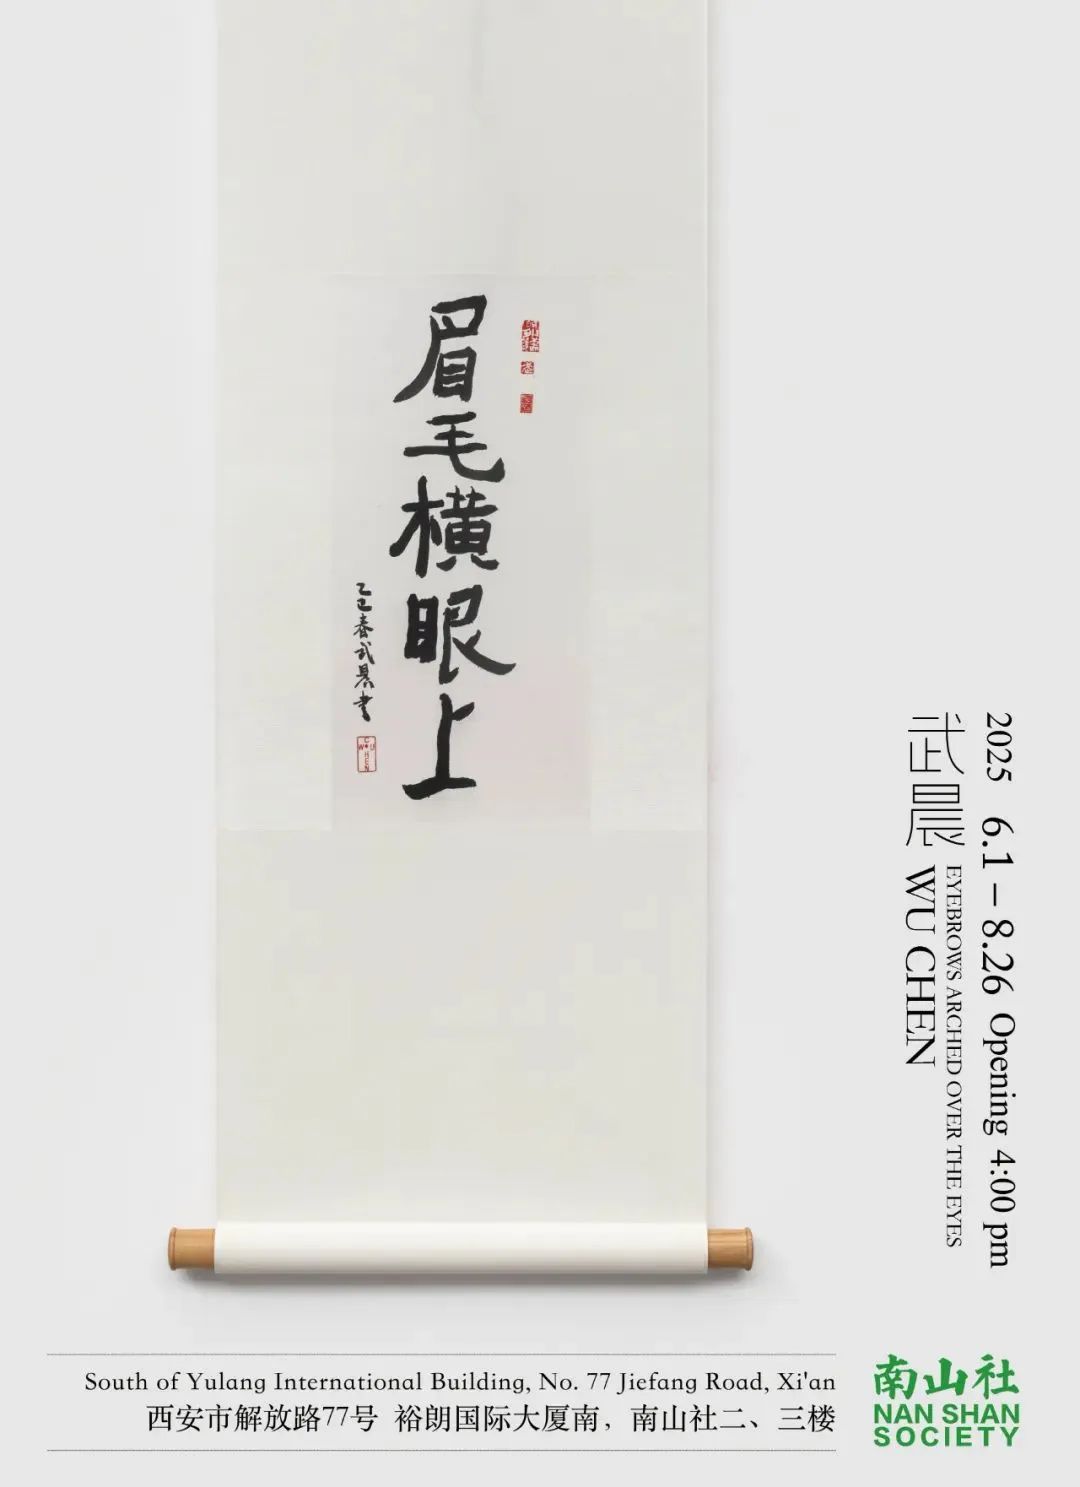 眉毛橫眼上
乙巳春武晨书
WU CHEN
2025 6.1 – 8.26 Opening 4:00 pm
武晨 WU CHEN
EYEBROWS ARCHED OVER THE EYES
South of Yulang International Building, No. 77 Jiefang Road, Xi'an
西安市解放路77号 裕朗国际大厦南，南山社二、三楼
南山社
NAN SHAN
SOCIETY